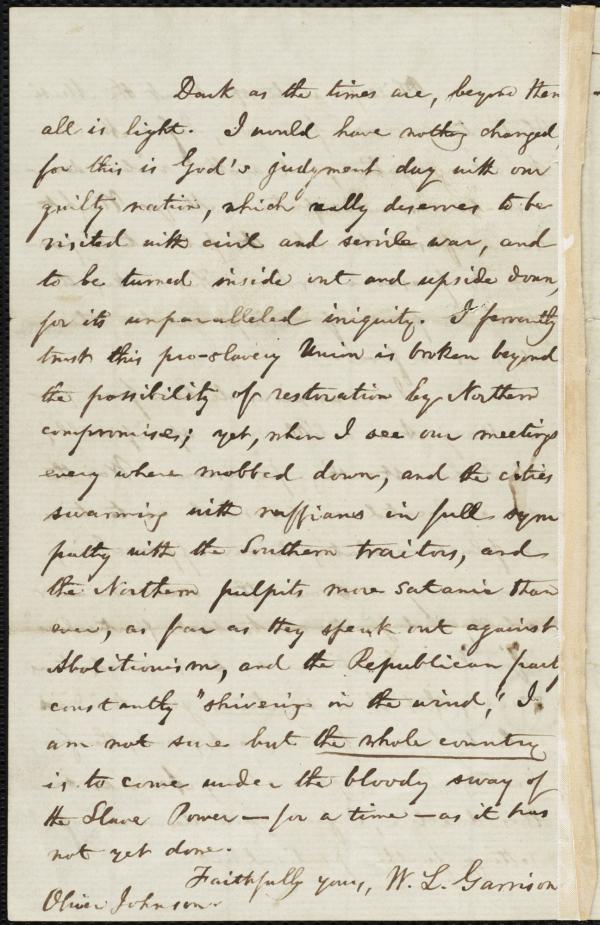 Dark as the times are, beyond them
all is light. I would have nothing changed,
for this is God's judgment day with our
guilty nation, which really deserves to be
visited with civil and servile war, and
to be turned inside out and upside down,
for its unparalleled iniquity. I fervently
trust this pro-slavery Union is broken beyond
the possibility of restoration by Northern
compromises; yet, when I see our meetings
every where mobbed down, and the cities
swarming with ruffians in full sym
pathy with the Southern traitors, and
the Northern pulpits more satanic than
ever, as far as they speak out against
Abolitionism, and the Republican party
constantly "shivering in the wind," I
am not sure but the whole country
is to come under the bloody sway of
the Slave Power—for a time—as it has
not yet done.
Faithfully yours, W. L. Garrison
Oliver Johnson.